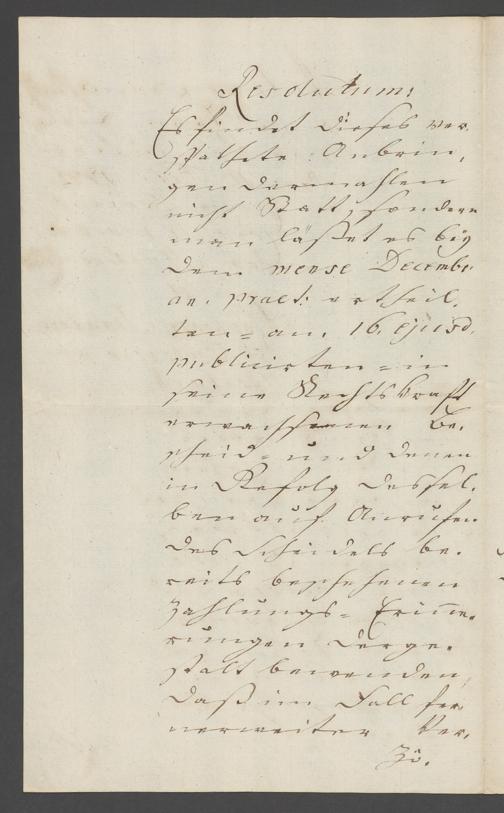 Resolutum:
Es findet dieses ver,
spathete Anbrin,
gen dermahlen
nicht Statt, sondern
man läßet es bëy
dem mense Decembr.
an. praet: ertheil,
ten = an. 16. ejusd.
publicirten = in
seine Rechtskraft
erwachsenen Be,
scheid = und denen
in Gefolg dessel,
ben auf Anrufen
des Schindels be,
reits beschehenen
Zahlungs = Erinne,
rungen derge,
stalt bewenden,
daß im Fall fer,
nerweiter Ver,
Zö,